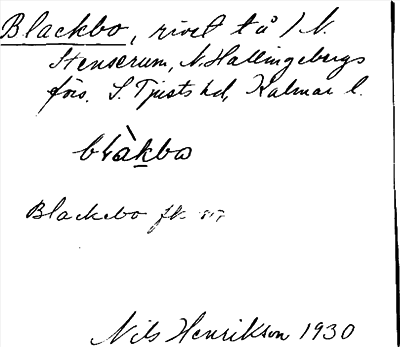 Blackbo, rivet tå / N.
Stenserum, N. Hallingebergs
förs. S. Tjusts hd, Kalmar l.
blàkbo
Blackebo jk
Nils Henrikson 1930